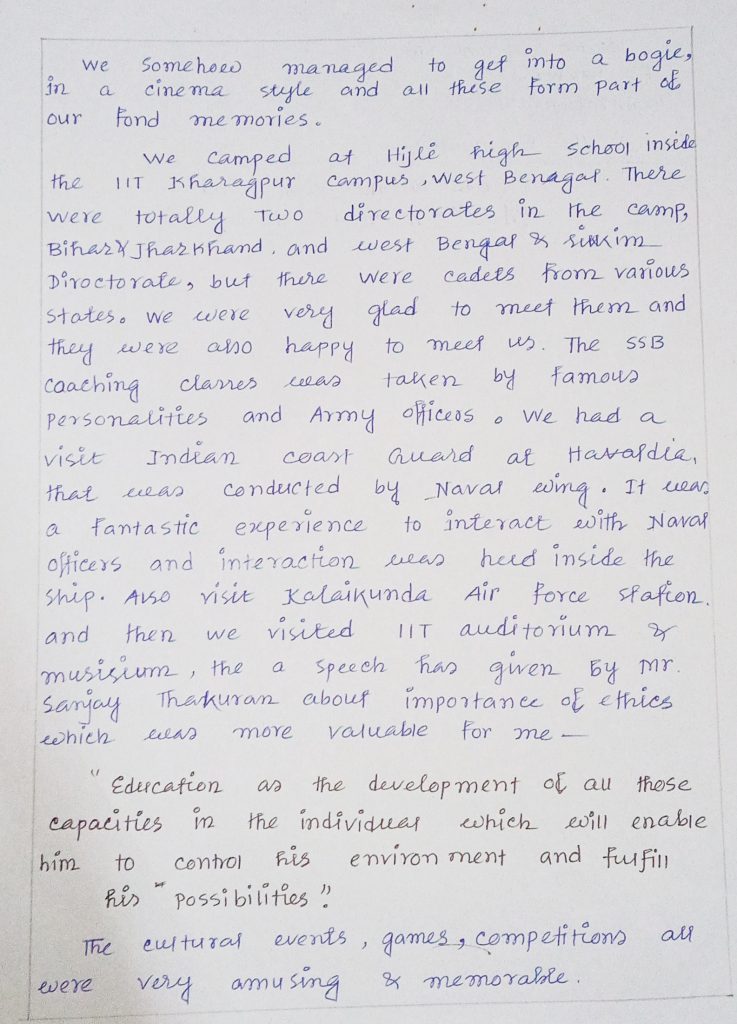 We Somehow managed to get into a bogie,
in a cinema style and all these form part of
our fond memories.
We camped at Hijli high School inside
the IIT Kharagpur campus, West Benagal. There
were totally Two directorates in the camp,
Bihar & Jharkhand. and west Bengal & sikkim
Diroctorate, but there were cadets from various
States. We were very glad to meet them and
they were also happy to meet us. The SSB
Caaching classes was taken by famous
Personalities and Army officeos. We had a
visit Indian coast Guard at Havaldia,
that was conducted by Naval wing. It was
a fantastic experience to interact with Naval
officers and interaction was held inside the
ship. Also visit Kalaikunda Air force station.
and then we visited IIT auditorium &
musisium, the a speech has given by Mr.
Sanjay Thakuran about importance of ethics
which was more valuable for me —
" Education as the development of all those
capacities in the individual which will enable
him to control his environment and fulfill
his " possibilities ".
The cultural events, games, competitions all
were very amusing & memorable.